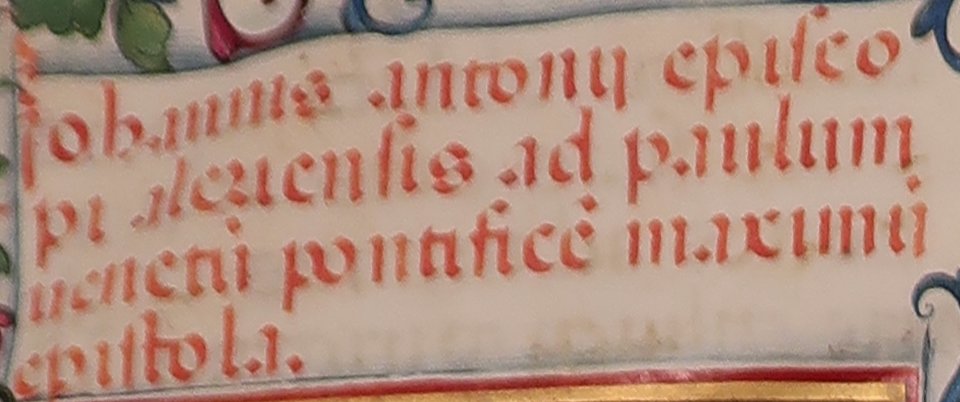 Iohannis antonij episco
pi aleriensis ad paulum
uenetū pontificē maximū
epistola.